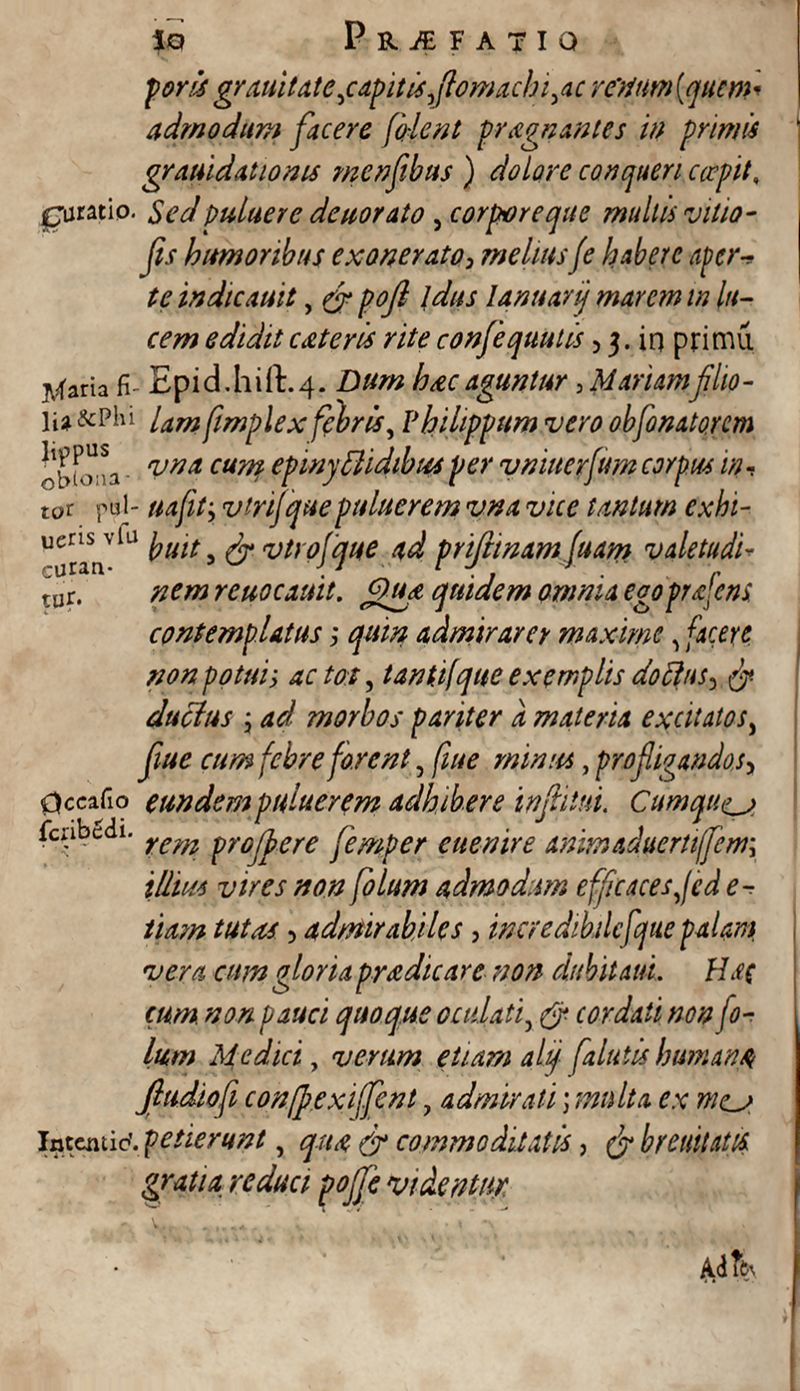 10 PRÆFATIO
poris grauitate, capitis, stomachi, ac renum (quem-
admodum facere solent prægnantes in primis
grauidationis mensibus ) dolore conqueri cœpit.
Curatio. Sed puluere deuorato, corporeque multis vitio-
sis humoribus exonerato, melius se habere aper-
te indicauit, & post Idus Ianuarij marem in lu-
cem edidit cæteris rite consequutis, 3. in primū
Maria fi- Epid. hist. 4. Dum hæc aguntur, Mariam filio-
lia & Phi lam simplex febris, Philippum vero obsonatorem
lippus obsona- vna cum epinyctidibus per vniuersum corpus in-
tor pul- uasit; vtrisque puluerem vna vice tantum exhi-
ueris vsu curan- buit, & vtrosque ad pristinam suam valetudi-
tur. nem reuocauit. Quæ quidem omnia ego præsens
contemplatus; quin admirarer maxime, facere
non potui; ac tot, tantisque exemplis doctus, &
ductus; ad morbos pariter à materia excitatos,
siue cum febre forent, siue minus, profligandos,
Occasio eundem puluerem adhibere institui. Cumque
scribēdi. rem prospere semper euenire animaduertissem;
illius vires non solum admodum efficaces, sed e-
tiam tutas, admirabiles, incredibilesque palam
vera cum gloria prædicare non dubitaui. Hæc
cum non pauci quoque oculati, & cordati non so-
lum Medici, verum etiam alij salutis humanæ
studiosi conspexissent, admirati; multa ex me
Intentio. petierunt, quæ & commoditatis, & breuitatis
gratia reduci posse videntur